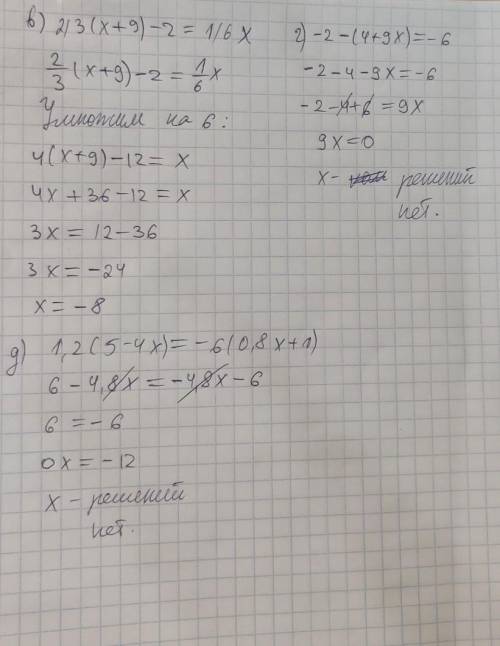 в) 2/3(x+9)-2=1/6x
2/3(x+9)-2=1/6x
Умножим на 6:
4(x+9)-12=x
4x+36-12=x
3x=12-36
3x=-24
x=-8
г) -2-(4+9x)=-6
-2-4-9x=-6
-2-4+6=9x
9x=0
x- решений
нет.
д) 1,2(5-4x)=-6(0,8x+1)
6-4,8x=-4,8x-6
6=-6
0x=-12
x-решений
нет.